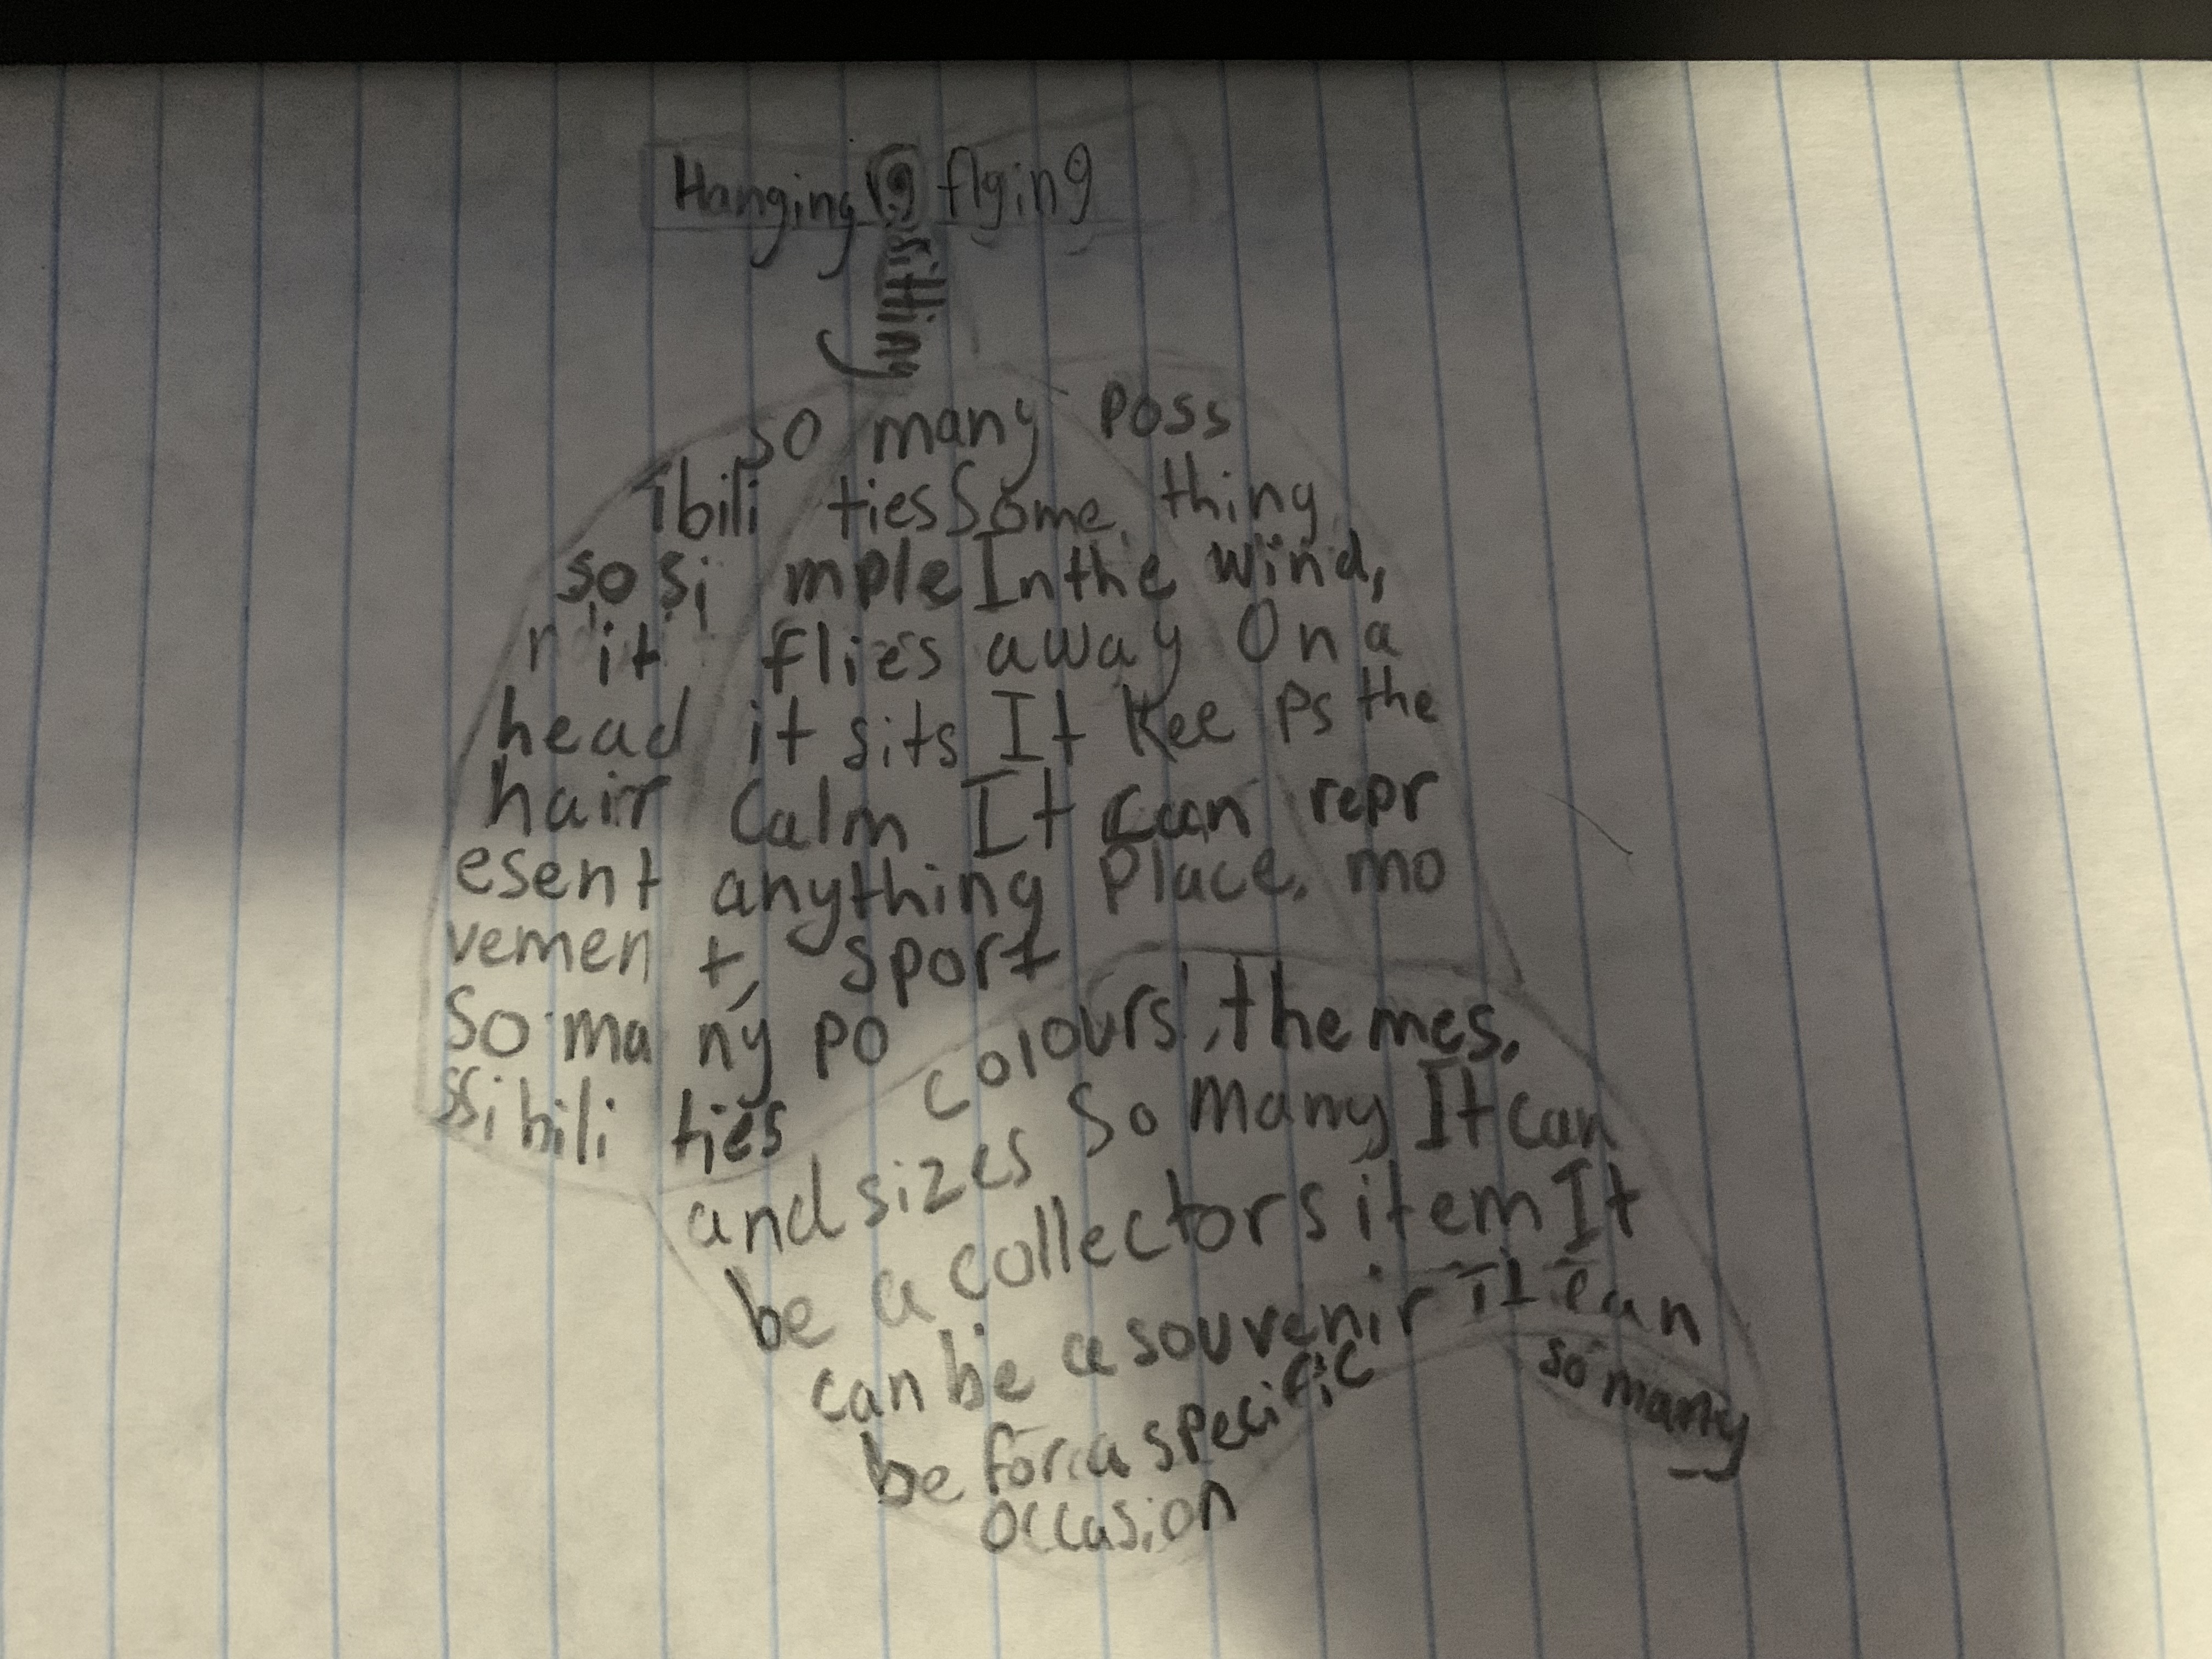 Hanging flying
sitting
so many poss
ibili ties Some thing
so si mple In the wind,
it flies away On a
head it sits It kee ps the
hair calm It can repr
esent anything Place, mo
vemen t, sport
So ma ny po
ssibili ties
colours, themes,
and sizes So Many It can
be a collectors item It
can be a souvenir It can
be for a specific
occasion
so many